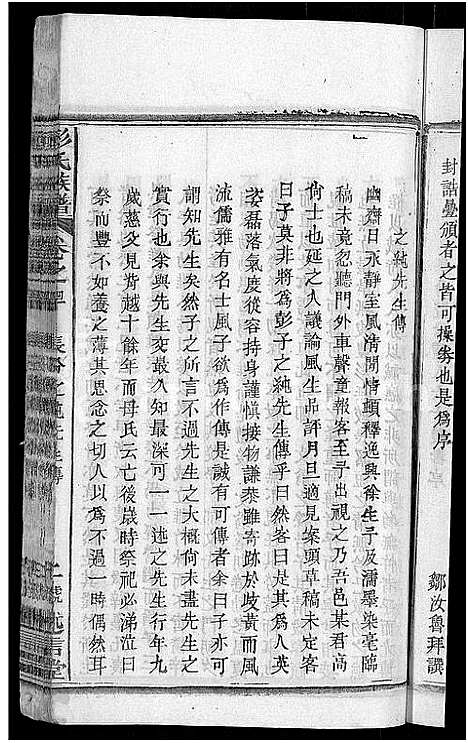 封誥疊頒者之皆可操券也是爲序
鄒汝魯拜譔
之純先生傳
幽齋日永靜室風清閒情顫釋逸興徐生予及濡墨染毫臨
稿未竟忽聽門外車聲童報客至予出視之乃吾邑某君高
尙士也延之入議論風生品評月旦適見案頭草稿未定問
曰子莫非將爲彭子之純先生傳乎曰然客曰是其爲人英
姿磊落氣度從容持身謹愼接物謙泰雖寄跡於歧黄而風
流儒雅有名士風子欲爲作傳是誠有可傳者余曰子亦可
謂知先生矣然子之所言不過先生之大槪尙未盡先生之
實行也余與先生交最久知最深可一一述之先生行年九
歲慈父見背越十餘年而母氏云亡後歲時祭祀必涕泣曰
祭而豐不如養之薄其思念之切人以爲不過一時偶然耳
彭氏族譜
卷之
長房之純先生傳
述古堂